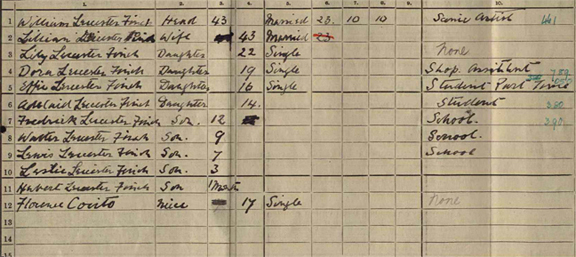 1. 2. 3. 4. 5. 6. 7. 8. 9. 10.
1 William Leicester Finch Head 43 Married 23. 10 10 Scenic Artist 441
2 Lillian Leicester Finch Wife 43 Married 23
3 Lily Leicester Finch Daughter 22 Single None
4 Dora Leicester Finch Daughter 19 Single Shop Assistant
5 Effie Leicester Finch Daughter 16 Single Student Part
6 Adelaid Leicester Finch Daughter 14. Student 350
7 Fredrick Leicester Finch Son. 12 School. 390
8 Walter Leicester Finch Son. 9 School.
9 Lewis Leicester Finch Son. 7 School
10 Leslie Leicester Finch Son. 3
11 Hubert Leicester Finch Son 1 Month
12 Florence Niece 17 Single None
13
14
15